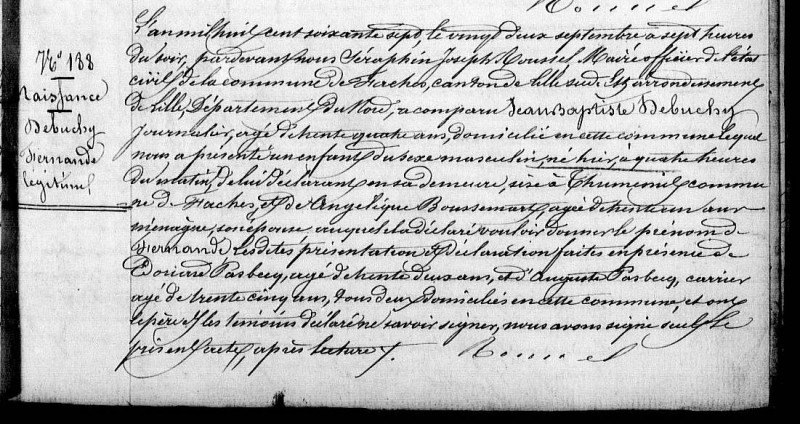 Roussel
N° 138
Naissance
Debuchy
Fernande
légitime
L'an mil huit cent soixante sept, le vingt deux septembre a sept heures
du soir, pardevant nous Séraphin Joseph Roussel Maire officier de l'état
civil de la commune de Faches, canton de Lille sud-Est arrondissement
de Lille, Département du Nord, a comparu Jean Baptiste Debuchy
journalier, agé de trente quatre ans, domicilié en cette commune lequel
nous a présenté un enfant du sexe masculin, né hier, a quatre heures
du matin, de lui déclarant en sa demeure, sise à Thumesnil commu
ne de Faches, et de Angélique Boussemart, agée de trente un ans
ménagère, son épouse auquel il a déclaré vouloir donner le prénom de
Fernande Lesdites présentation et déclaration faites en présence de
Edouard Pasbecq, agé de trente deux ans, et d'Auguste Pasbecq, carrier
agé de trente cinq ans, tous deux domiciliés en cette commune, et ont
le père et les témoins déclaré ne savoir signer, nous avons signé seul le
présent acte, après lecture.
Roussel